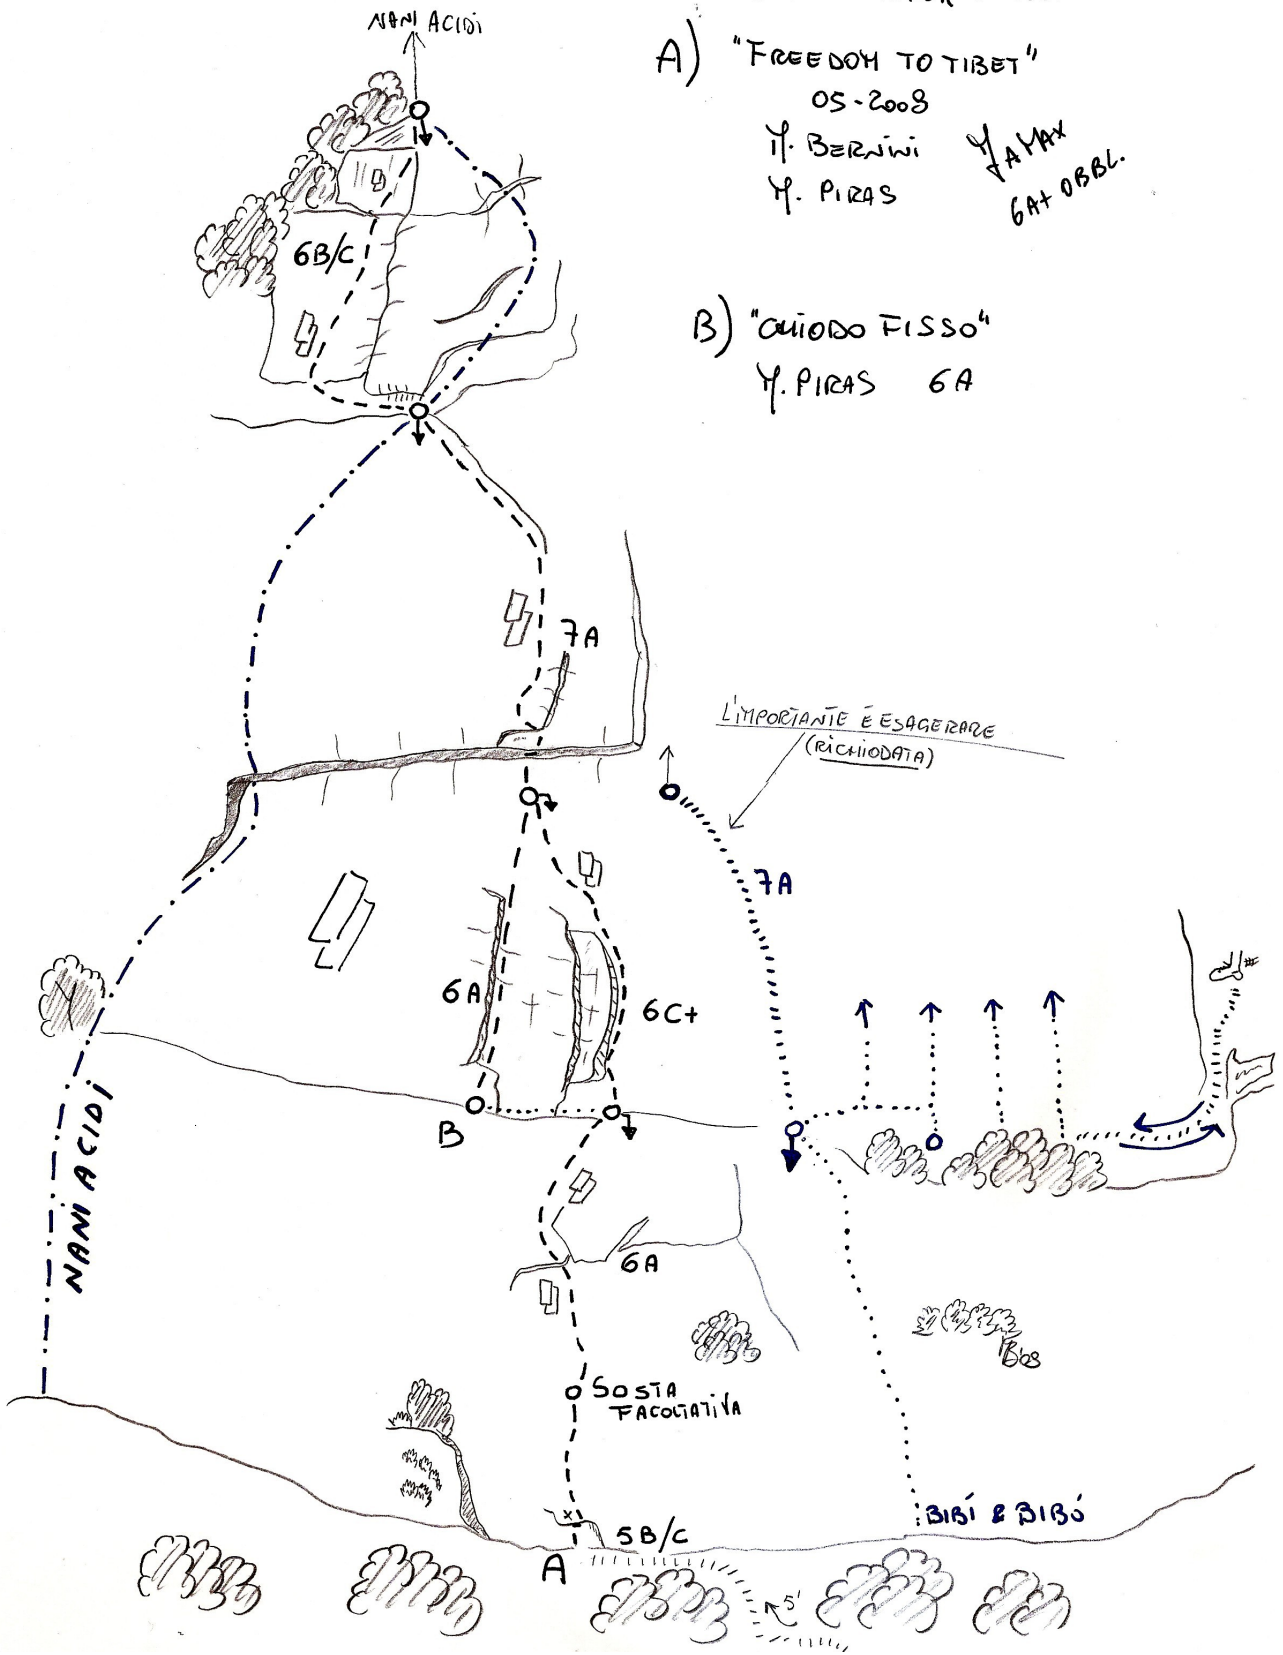 NANI ACIDI
A) "FREEDOM TO TIBET"
05-2008
M. BERNINI
M. PIRAS
7A MAX
6A+ OBBL.
6B/C
B) "CHIODO FISSO"
M. PIRAS 6A
7A
L'IMPORTANTE È ESAGERARE
(RICHIODATA)
7A
6A
6C+
B
NANI ACIDI
6A
SOSTA
FACOLTATIVA
BIBÍ & BIBÓ
5B/C
A
5'